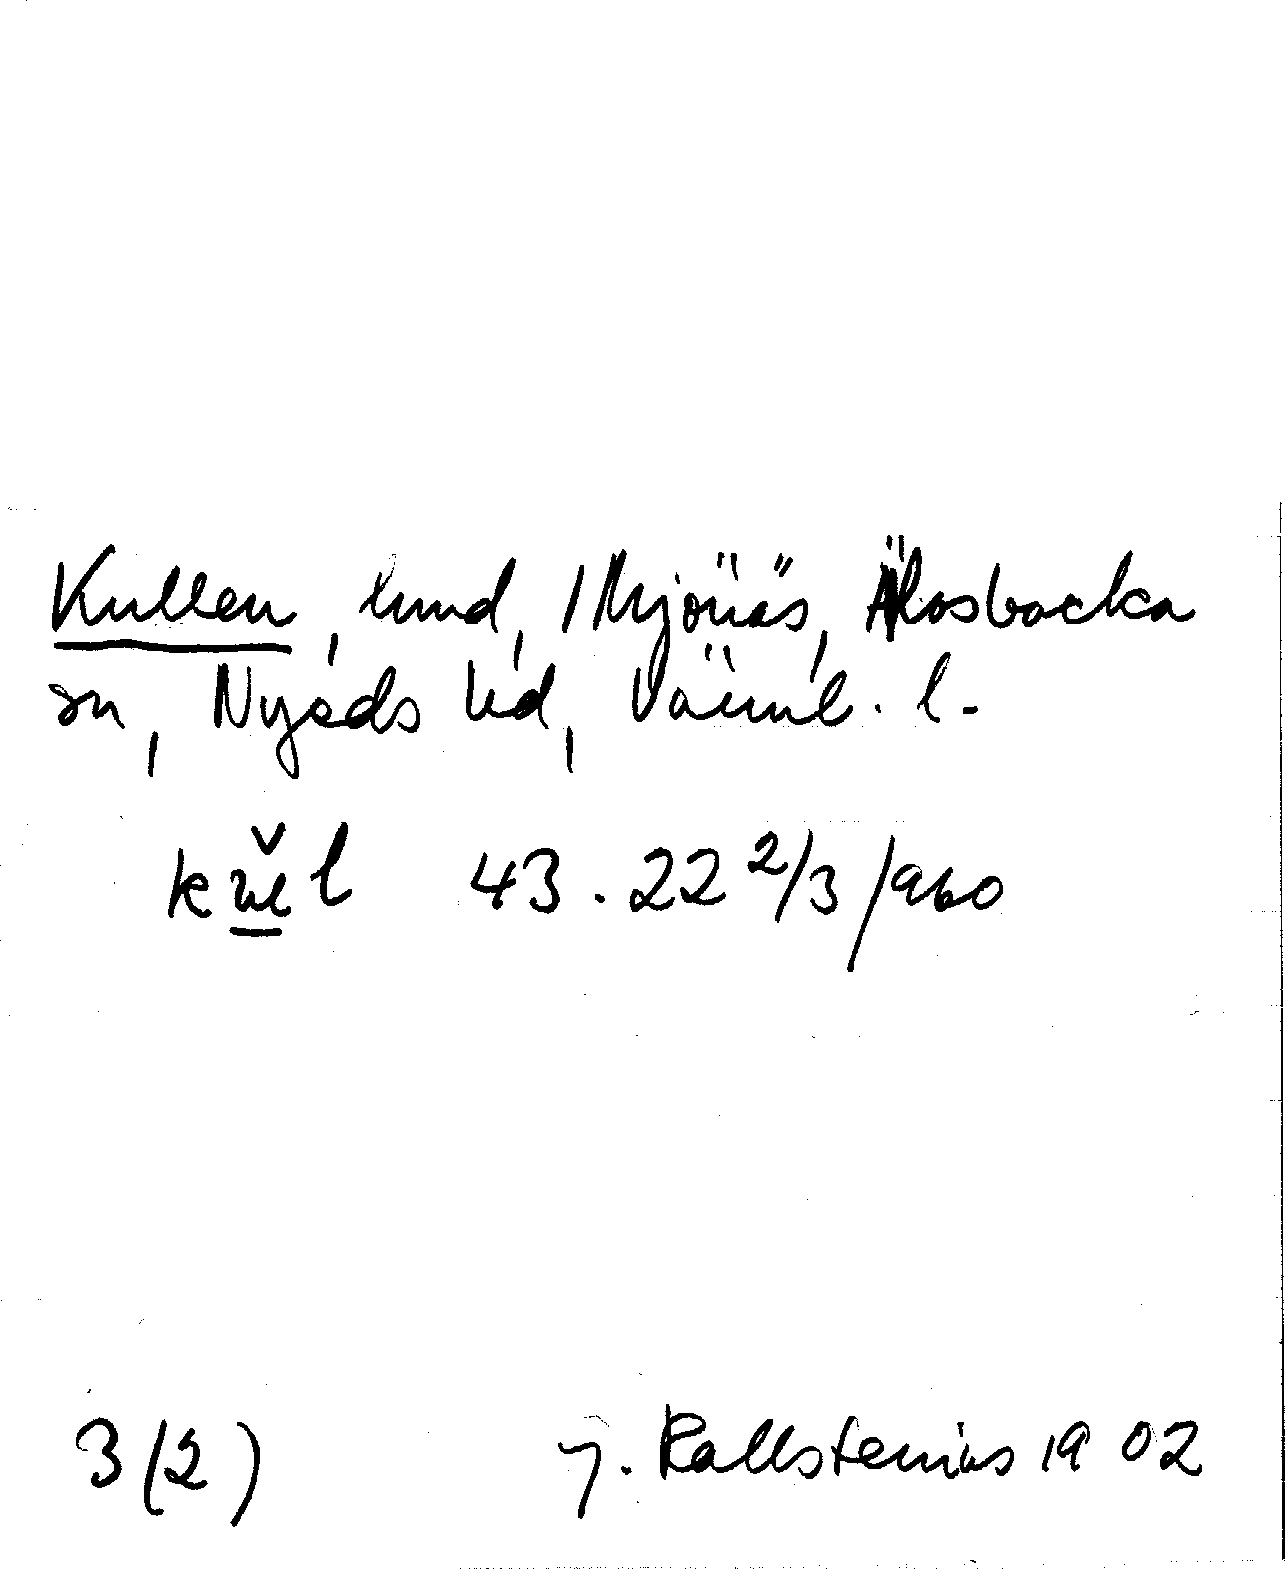 Kullen, hmd, Mjönäs, Älvsbacka
sn, Nyeds hd, Värml. l.
43.22 2/3/960
3(2)
G. Kallstenius 1902